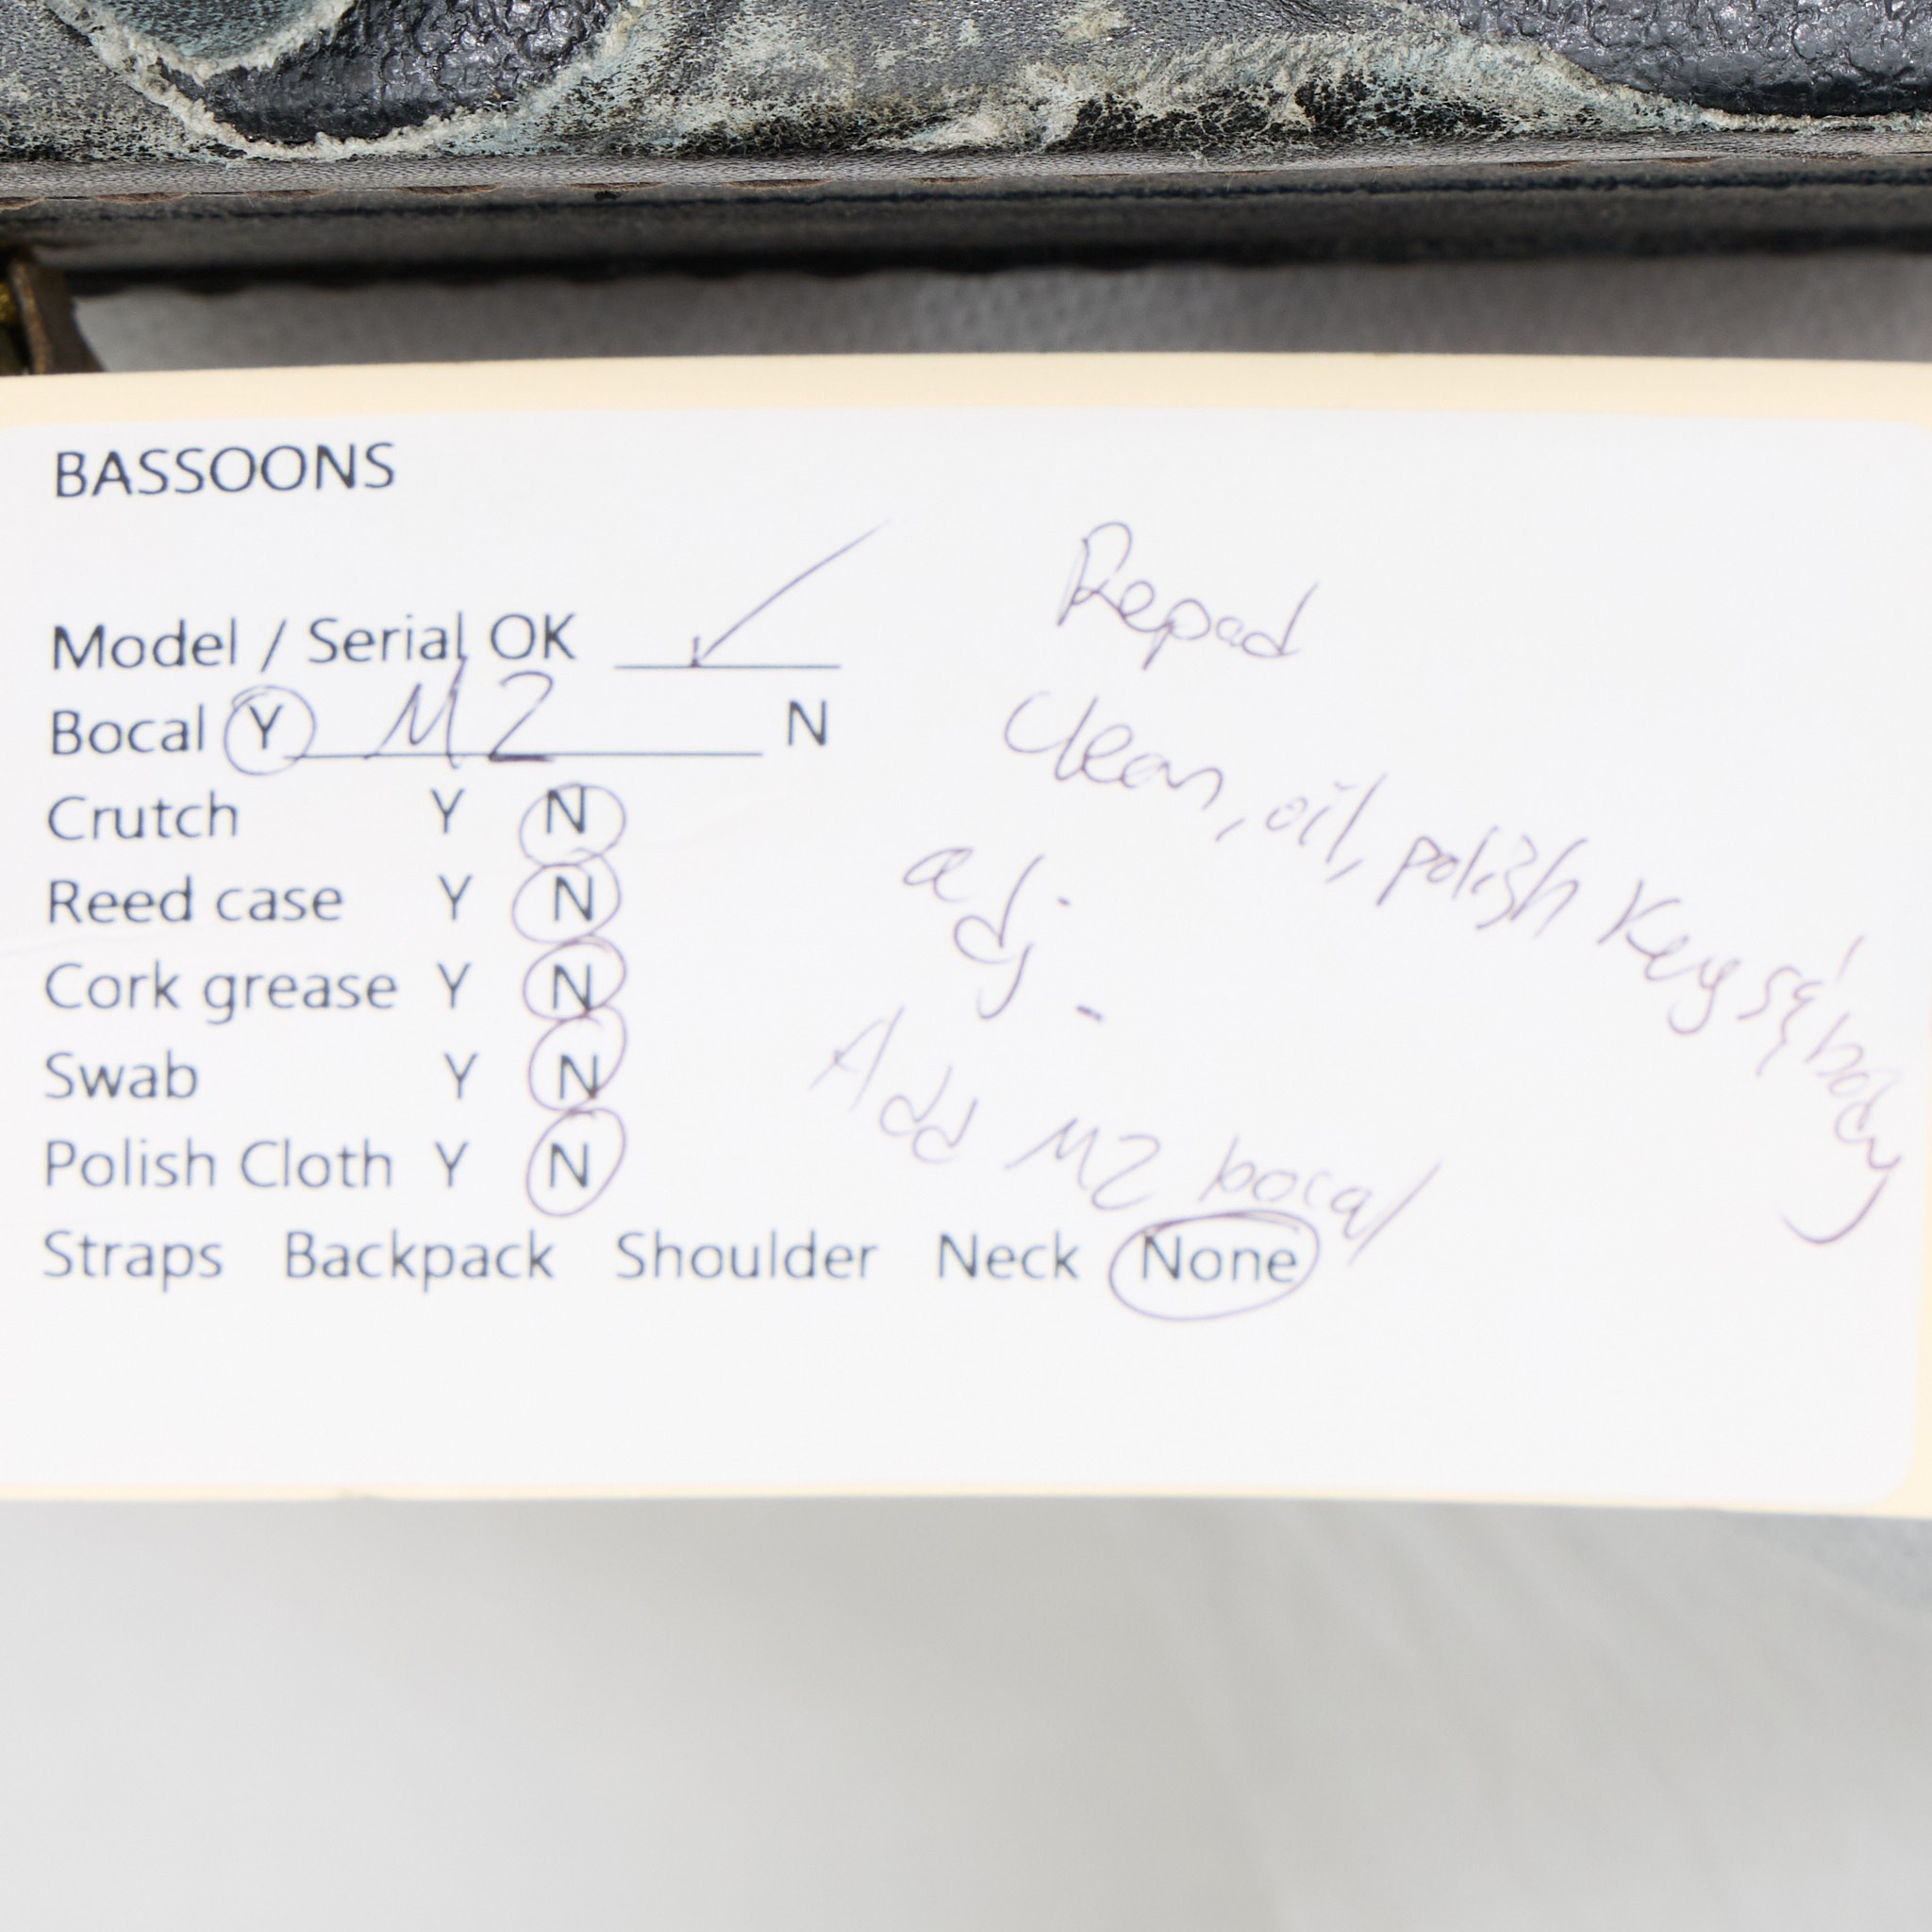 BASSOONS
Model / Serial OK ✓
Bocal Y M2 N
Crutch Y N
Reed case Y N
Cork grease Y N
Swab Y N
Polish Cloth Y N
Straps Backpack Shoulder Neck None
Repad
Clean, oil, polish Keys & body
adj.
Add M2 bocal